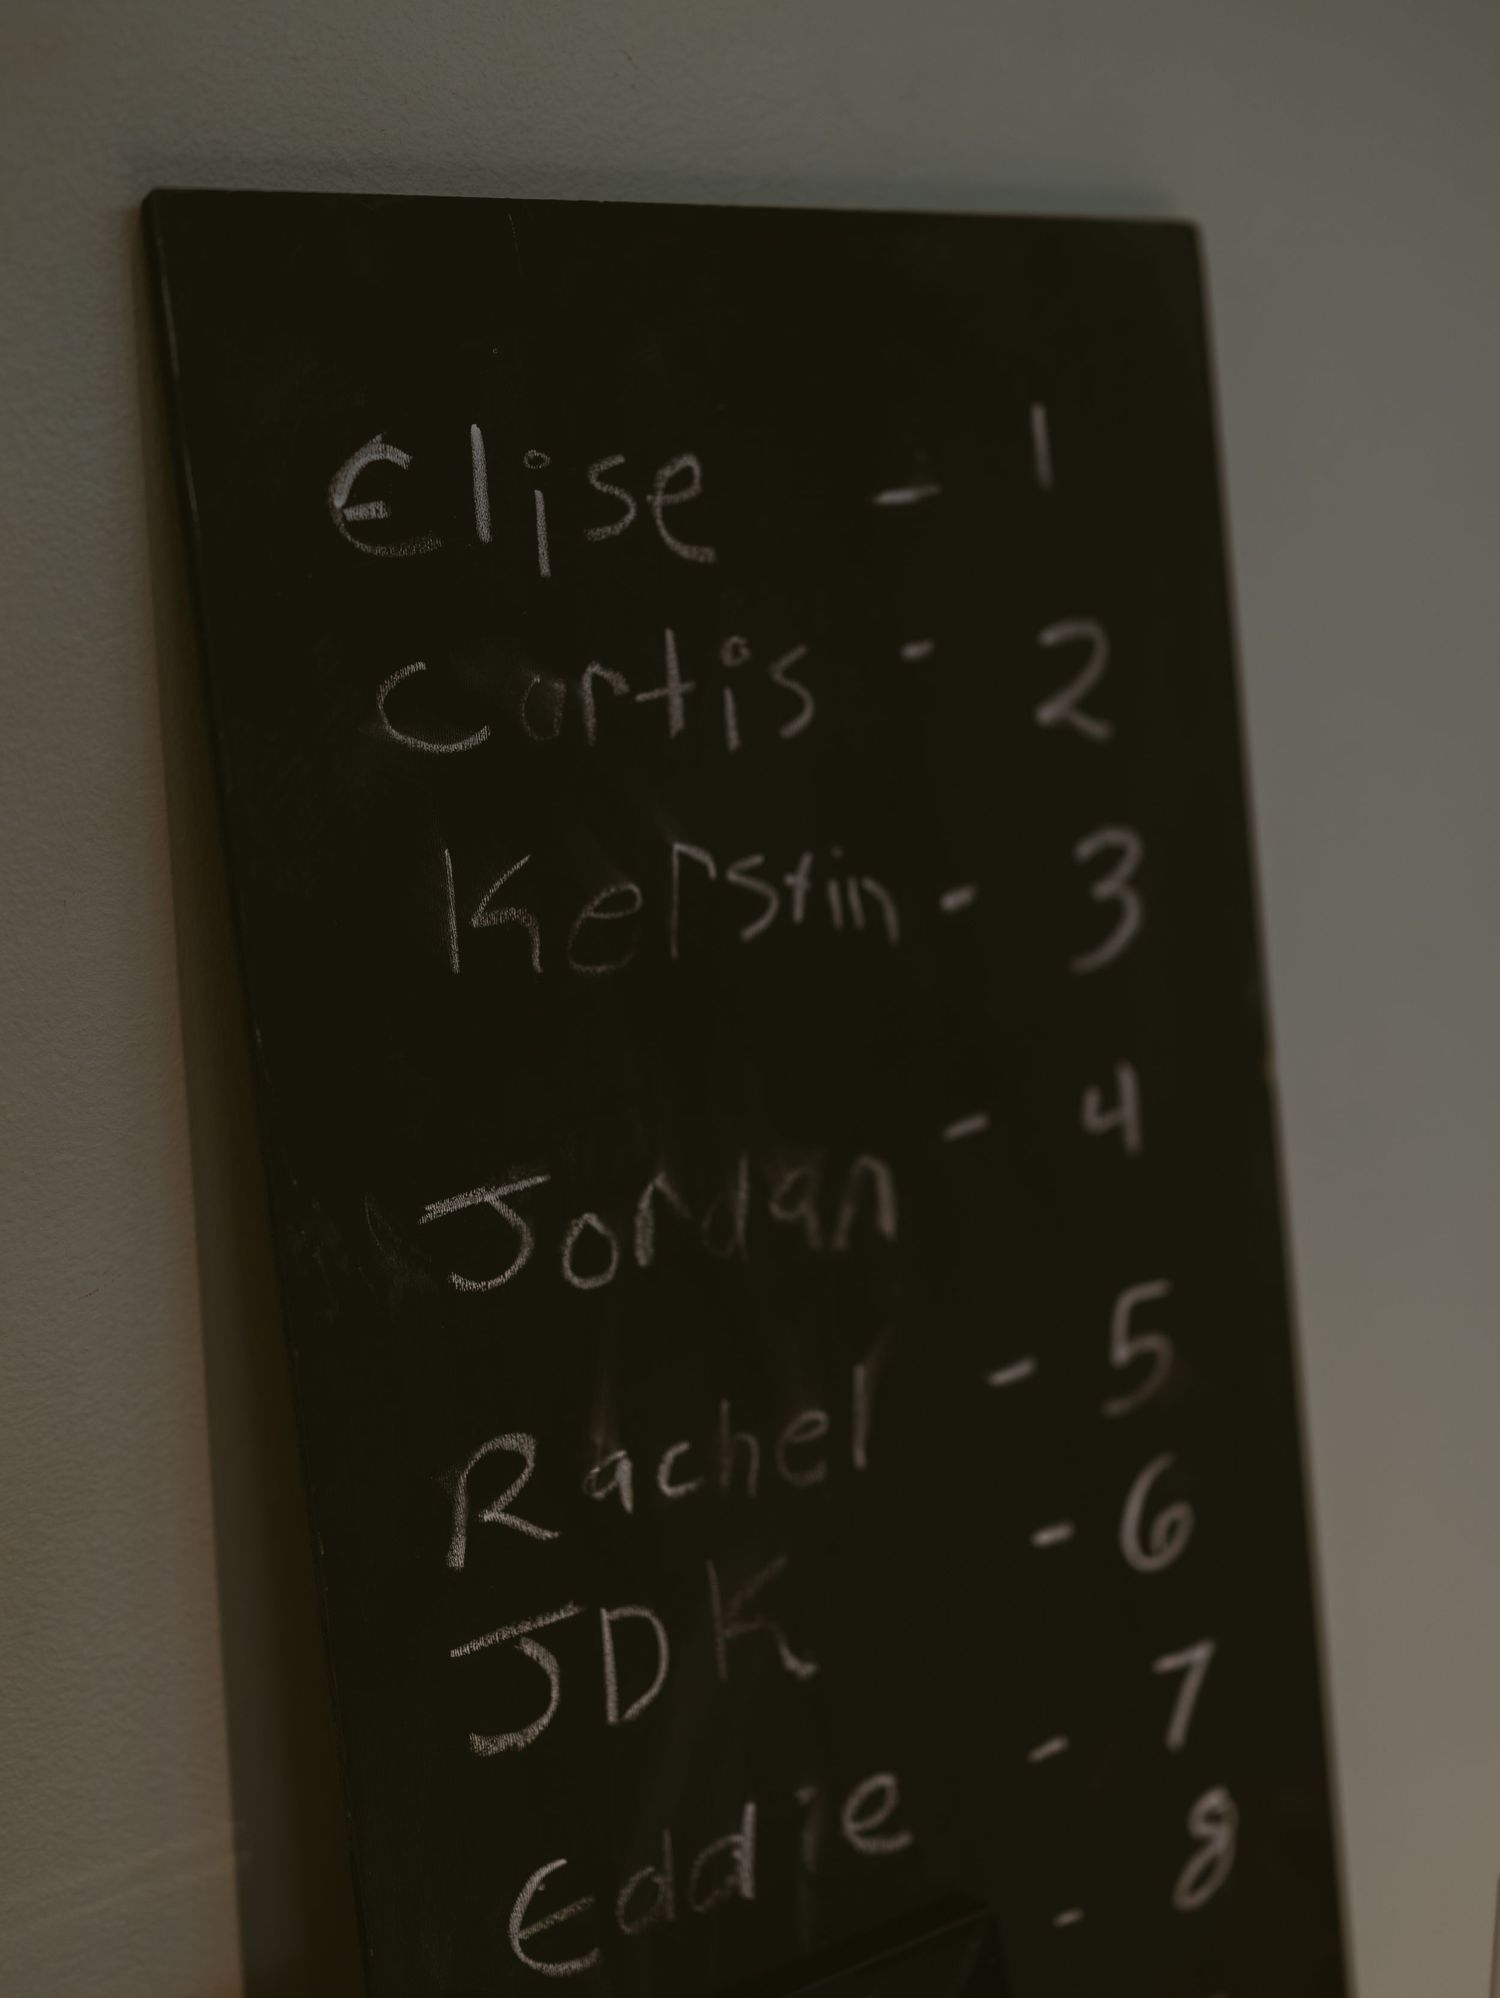 Elise - 1
Curtis - 2
Kerstin - 3
Jordan - 4
Rachel - 5
JDK - 6
Eddie - 7
- 8